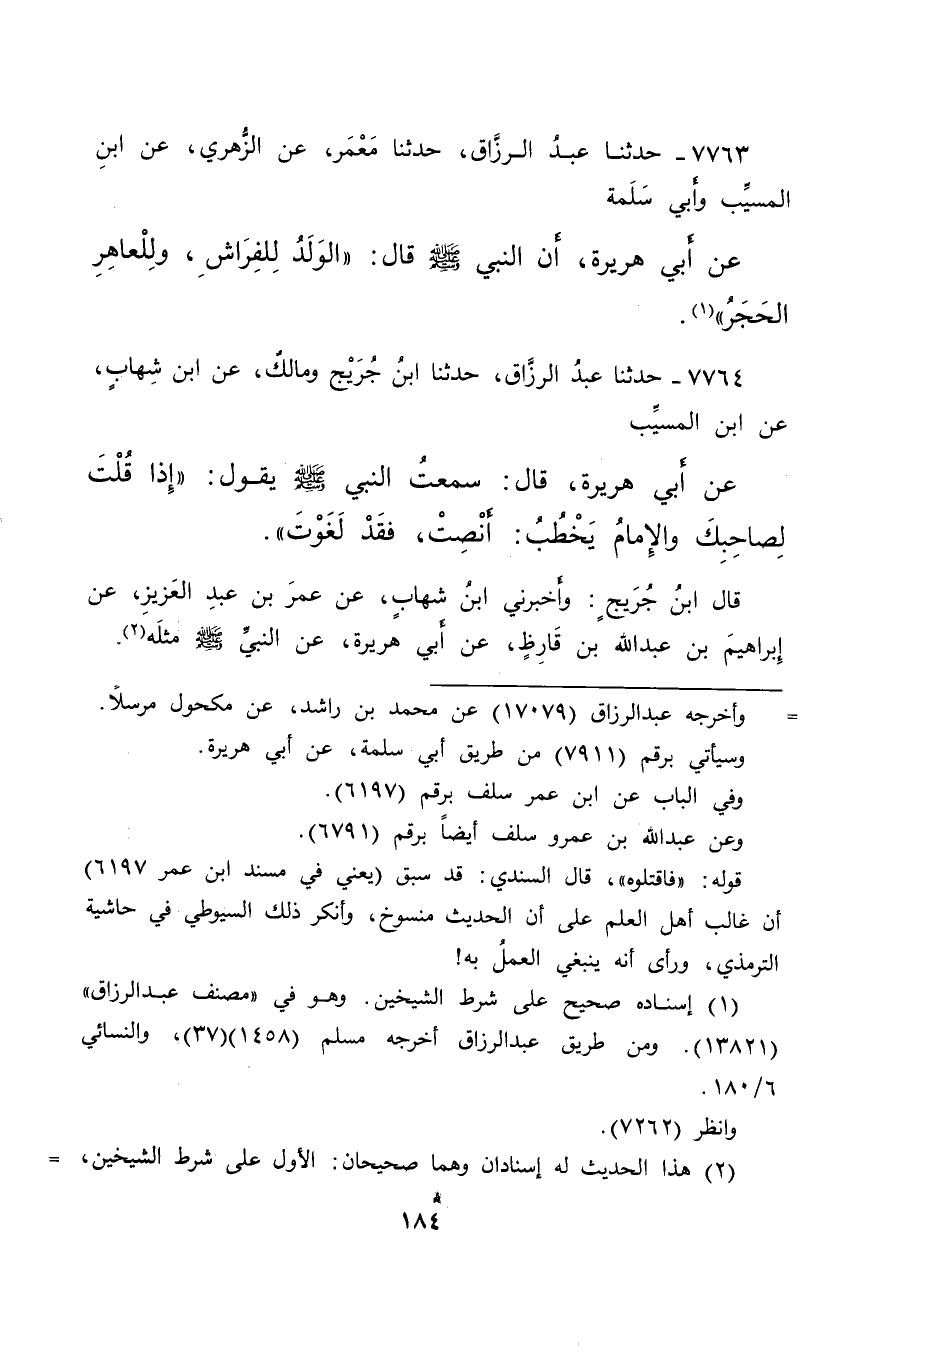 ٧٧٦٣ـ حدثنـا عبـدُ الـرزَّاق، حدثنا مَعْمَر، عن الزُّهري، عن ابنِ
المسيِّب وأَبي سَلَمة
عن أَبي هريرة، أَن النبي ﷺ قال: «الوَلَدُ لِلفِرَاشِ ، ولِلْعاهِرِ
الحَجَرُ»(١).
٧٧٦٤ـ حدثنا عبدُ الرزَّاق، حدثنا ابنُ جُرَيْج ومالكٌ، عن ابن شِهابٍ،
عن ابن المسيِّب
عن أَبي هريرة، قال: سمعتُ النبي ﷺ يقـول: «إِذا قُلْتَ
لِصاحِبِكَ والإِمامُ يَخْطُبُ: أَنْصِتْ، فقَدْ لَغَوْتَ».
قال ابنُ جُرَيجٍ: وأَخبرني ابنُ شهابٍ، عن عمرَ بن عبدِ العَزيزِ، عن
إِبراهيمَ بن عبدالله بن قَارِظٍ، عن أَبي هريرة، عن النبيِّ ﷺ مثلَه(٢).
= وأخرجه عبدالرزاق (١٧٠٧٩) عن محمد بن راشد، عن مكحول مرسلاً.
وسيأتي برقم (٧٩١١) من طريق أبي سلمة، عن أبي هريرة.
وفي الباب عن ابن عمر سلف برقم (٦١٩٧).
وعن عبدالله بن عمرو سلف أيضاً برقم (٦٧٩١).
قوله: «فاقتلوه»، قال السندي: قد سبق (يعني في مسند ابن عمر ٦١٩٧)
أن غالب أهل العلم على أن الحديث منسوخ، وأنكر ذلك السيوطي في حاشية
الترمذي، ورأى أنه ينبغي العملُ به!
(١) إسنـاده صحيح على شرط الشيخين. وهـو في «مصنف عبـدالرزاق»
(١٣٨٢١). ومن طريق عبدالرزاق أخرجه مسلم (١٤٥٨)(٣٧)، والنسائي
٦/١٨٠.
وانظر (٧٢٦٢).
(٢) هذا الحديث له إسنادان وهما صحيحان: الأول على شرط الشيخين، =
١٨٤